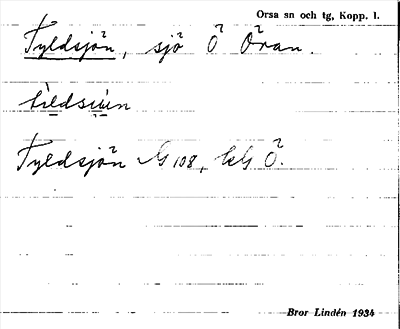 Orsa sn och tg, Kopp. l.
Tyldsjön, sjö Ö Öran.
Tyldsjön G 108, Ö.
Bror Lindén 1934